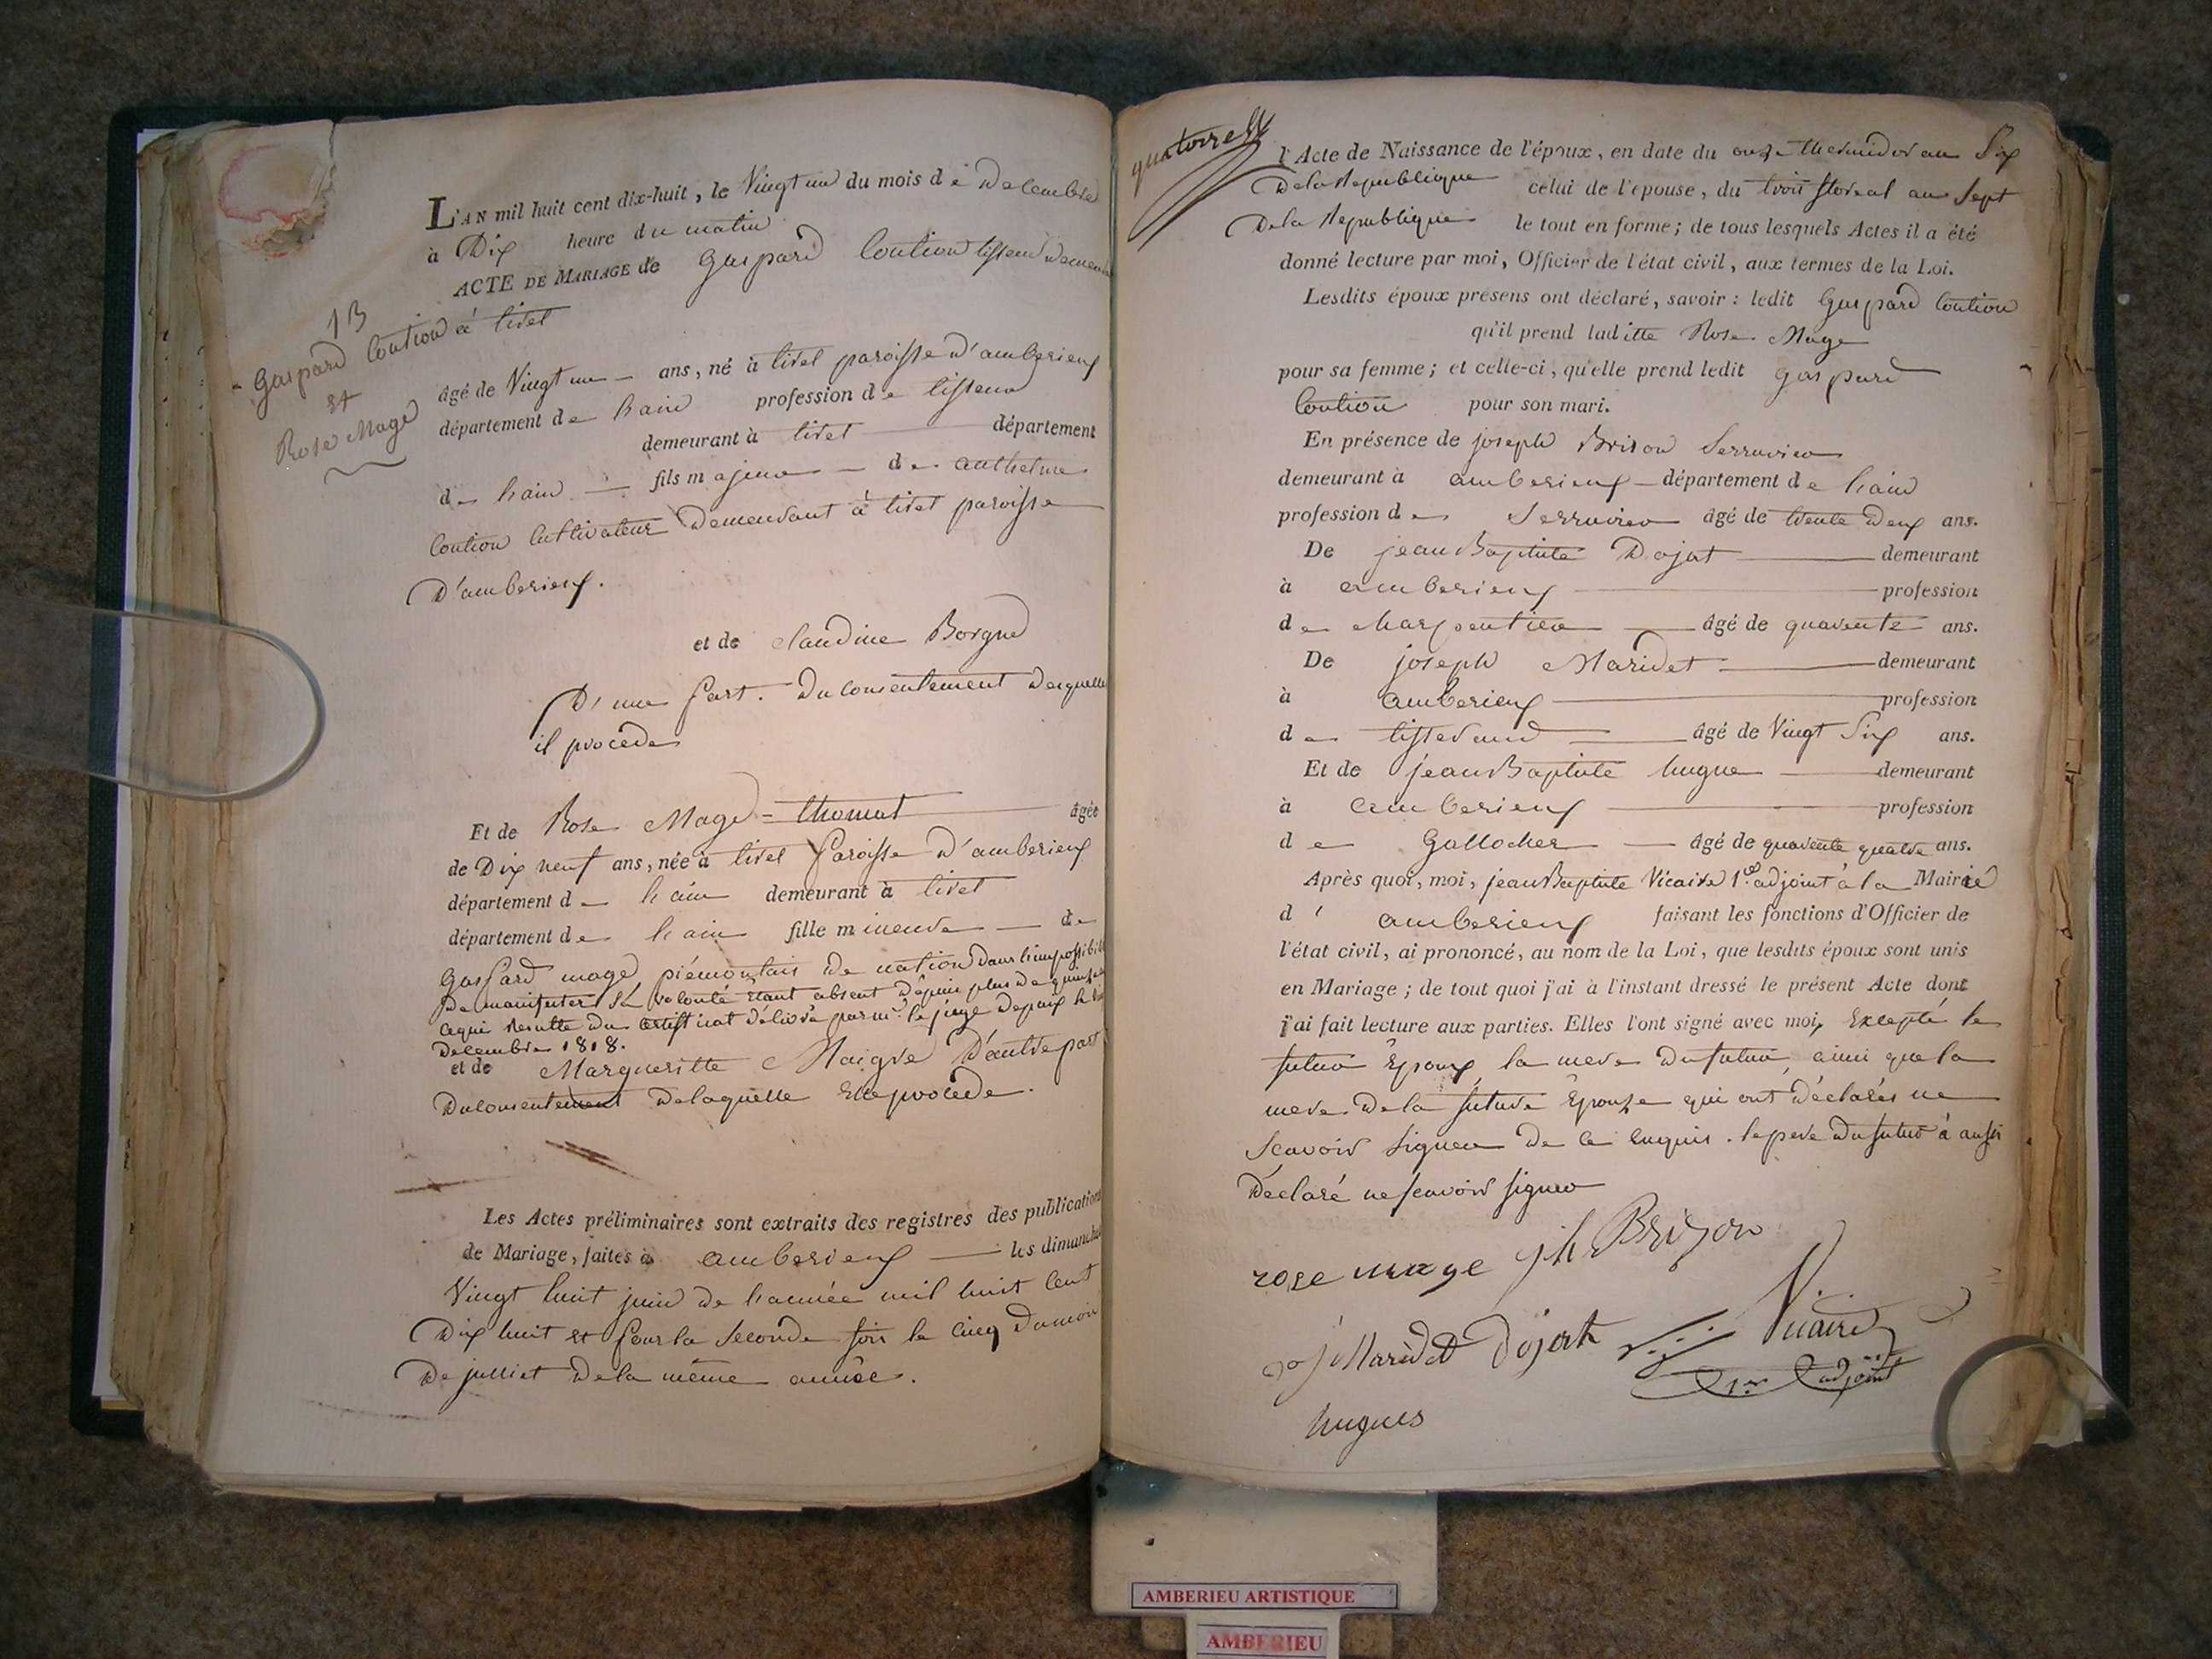 L'AN mil huit cent dix-huit, le Vingt un du mois de Decembre
à Dix heure du matin
ACTE DE MARIAGE de Gaspard Coution tisseur demeu
à tiret
13
Gaspard Coution
et
Rose Mage
âgé de Vingt un ans, né à tiret paroisse d'amberieux
département de l'ain profession de tisseur
demeurant à tiret département
de l'ain fils majeur de anthelme
Coution Cultivateur Demeurant à tiret paroisse
D'amberieux.
et de Claudine Borgne
D'une part. Du consentement desquelle
il procede
Et de Rose Mage = thomat âgée
de Dix neuf ans, née à tiret Paroisse D'amberieux
département de l'ain demeurant à tiret
département de l'ain fille mineure de
Gaspard mage piémontais de nation dans l'impossibili
De manifester sa volonté étant absent depuis plus de quinze
ce qui resulte du certificat délivré par mr. le juge de paix le
Decembre 1818.
et de Margueritte Maigre D'autre part
Du consentement De laquelle Elle procède.
Les Actes préliminaires sont extraits des registres des publications
de Mariage, faites à amberieux les dimanche
Vingt huit juin de l'année mil huit Cent
Dix huit et pour la Seconde fois le Cinq du mois
De juillet De la même année.
quatorze
l'Acte de Naissance de l'époux, en date du onze thermidor an Six
De la Republique celui de l'épouse, du trois floreal an Sept
De la Republique le tout en forme; de tous lesquels Actes il a été
donné lecture par moi, Officier de l'état civil, aux termes de la Loi.
Lesdits époux présens ont déclaré, savoir: ledit Gaspard Coution
qu'il prend laditte Rose Mage
pour sa femme; et celle-ci, qu'elle prend ledit Gaspard
Coution pour son mari.
En présence de joseph Brison Serrurier
demeurant à amberieux département de l'ain
profession de Serrurier âgé de trente Deux ans.
De jean Baptiste Dojat demeurant
à amberieux profession
de Charpentier âgé de quarente ans.
De joseph Maridet demeurant
à amberieux profession
de tisserand âgé de Vingt Six ans.
Et de jean Baptiste hugue demeurant
à amberieux profession
de Gallocher âgé de quarente quatre ans.
Après quoi, moi, jean Baptiste Vicaire 1er adjoint à la Mairie
d'amberieux faisant les fonctions d'Officier de
l'état civil, ai prononcé, au nom de la Loi, que lesdits époux sont unis
en Mariage; de tout quoi j'ai à l'instant dressé le présent Acte dont
j'ai fait lecture aux parties. Elles l'ont signé avec moi, Excepté le
futur Époux la mere du futur, ainsi que la
mere de la future Épouse qui ont Déclarés ne
Scavoir Signer de ce Enquis. le pere du futur à aussi
Déclaré ne scavoir signer
rose mage jh Brizon
jo Maridet Dojat Vicaire
1er adjoint
hugues
AMBERIEU ARTISTIQUE
AMBERIEU